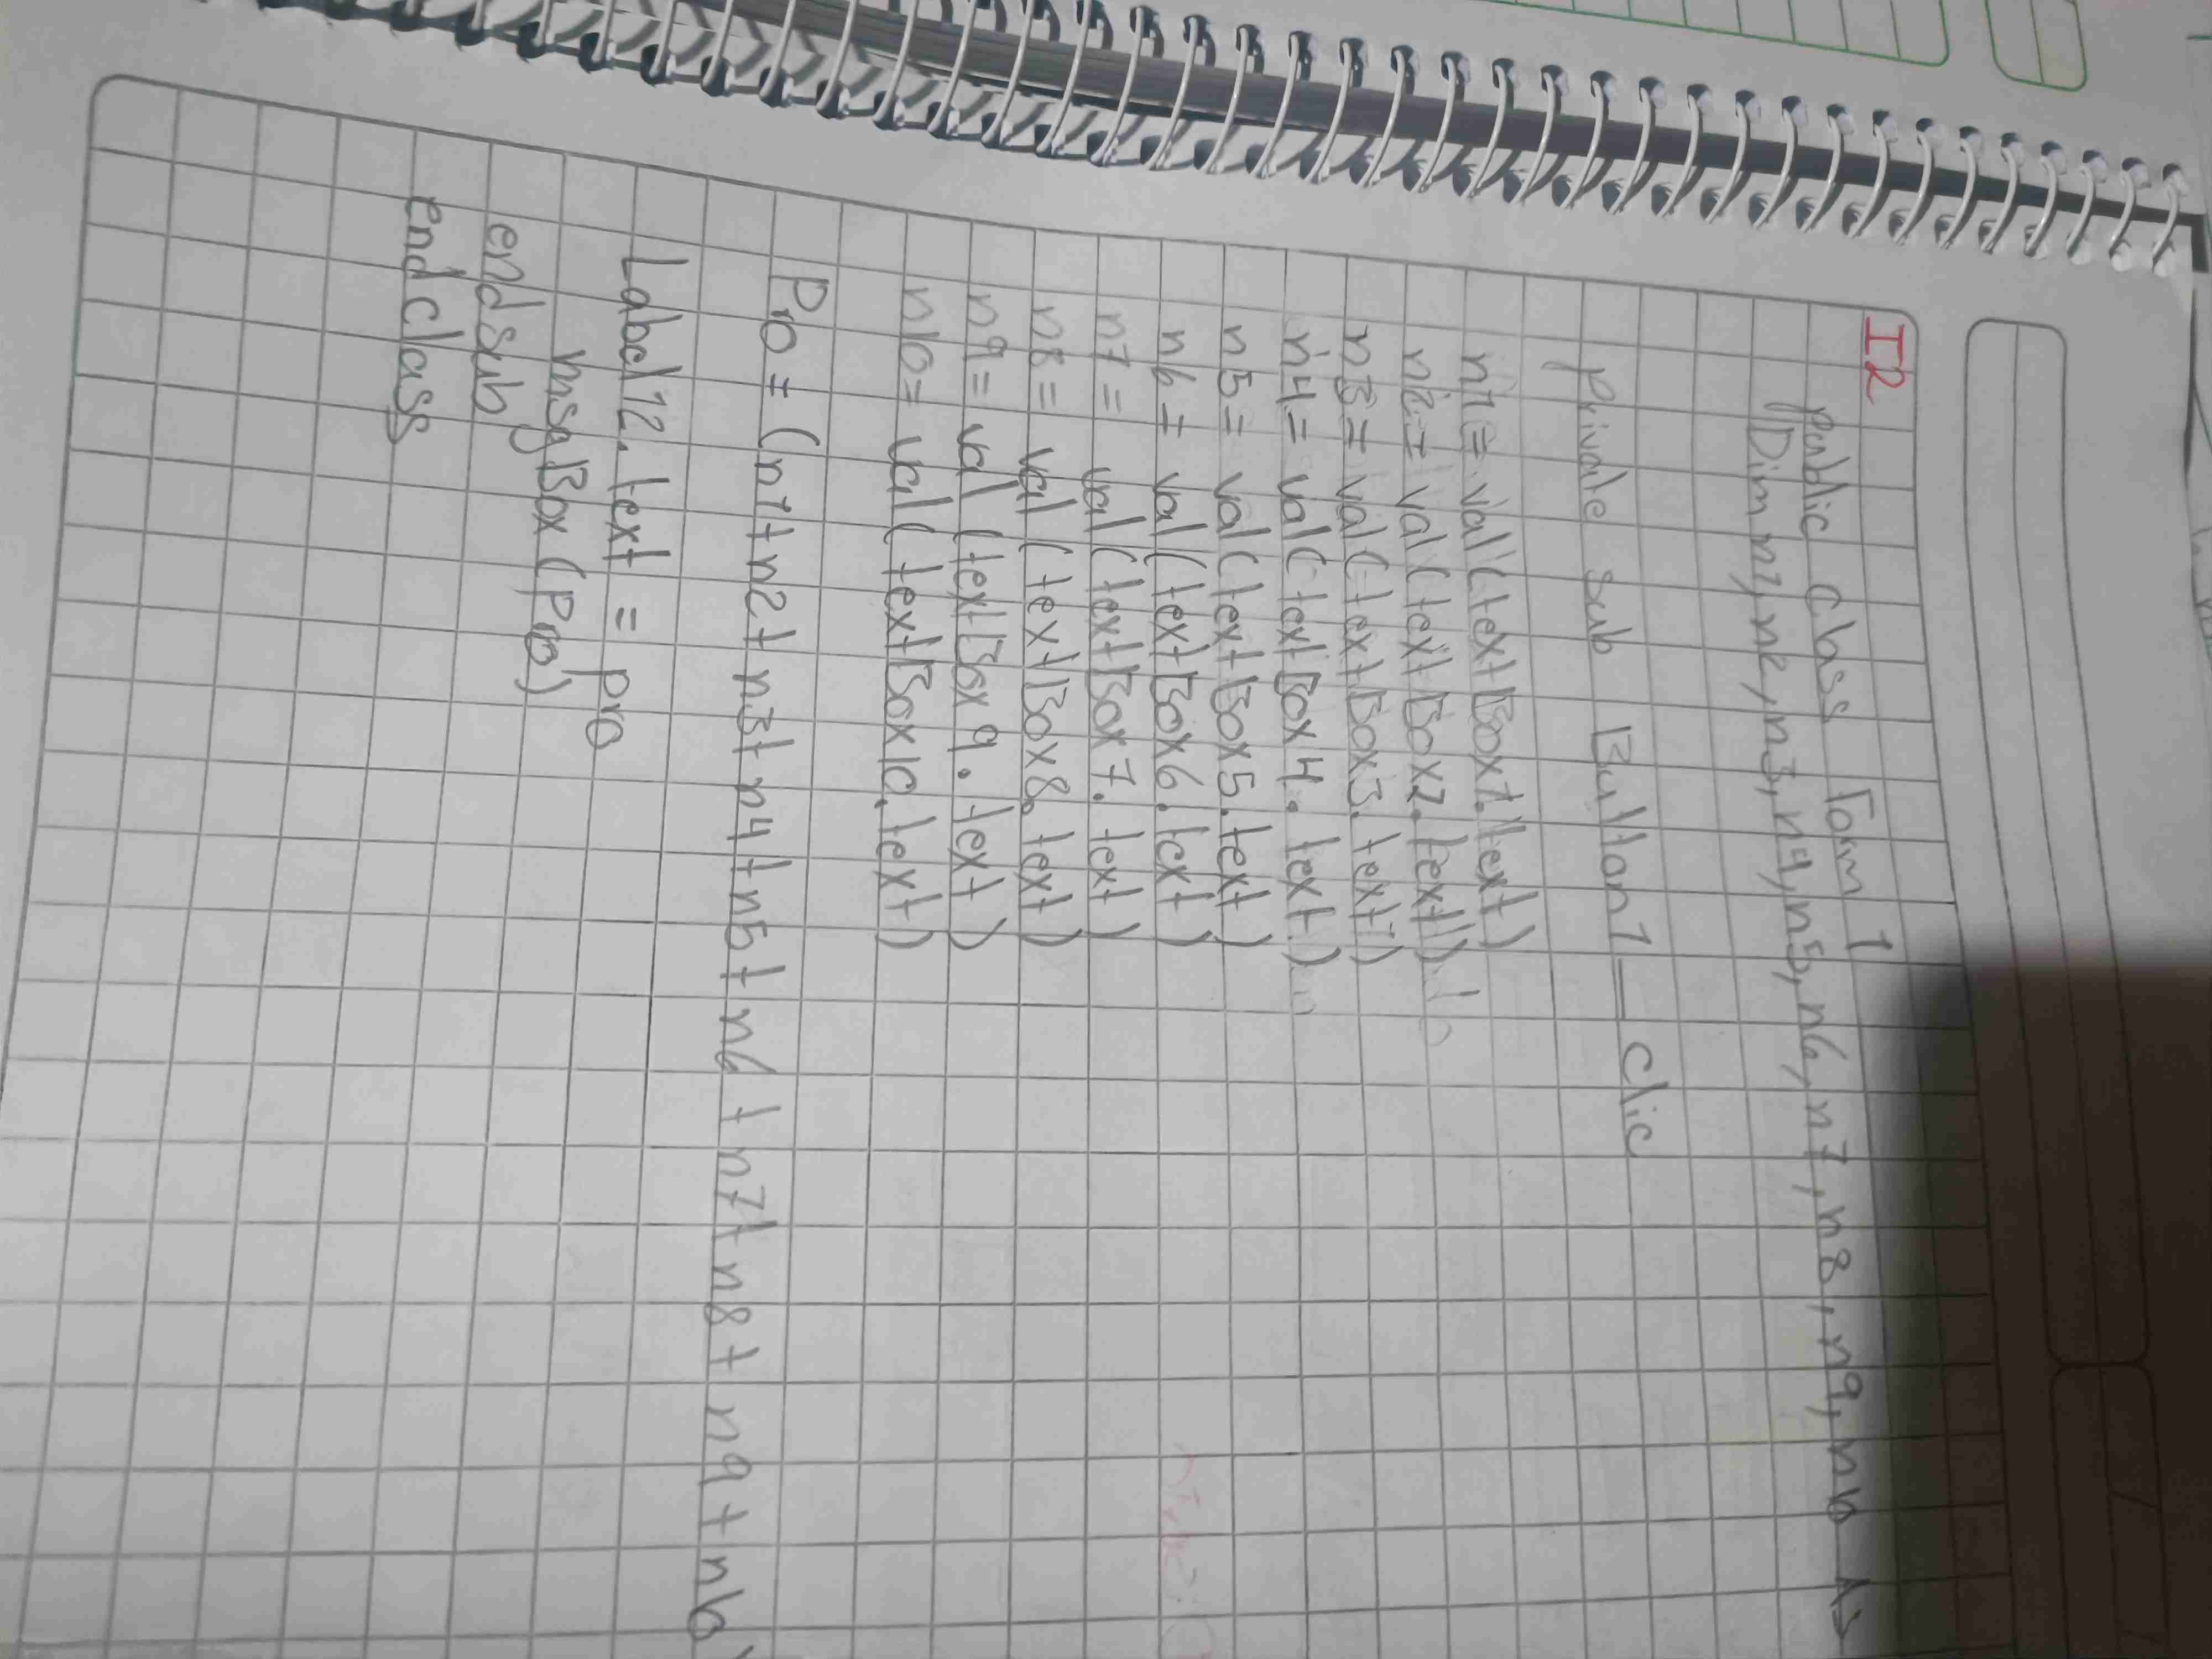 I2
Public Class Form 1
Dim n1, n2, n3, n4, n5, n6, n7, n8, n9, n10 As
Private Sub Button1_Clic
n1 = val (textBox1.text)
n2 = val (textBox2.text)
n3 = val (textBox3.text)
n4 = val (textBox4.text)
n5 = val (textBox5.text)
n6 = val (textBox6.text)
n7 = val (textBox7.text)
n8 = val (textBox8.text)
n9 = val (textBox9.text)
n10 = val (textBox10.text)
Pro = (n1+n2+n3+n4+n5+n6+n7+n8+n9+n10)
Label12.text = pro
msgBox (Pro)
end sub
end class